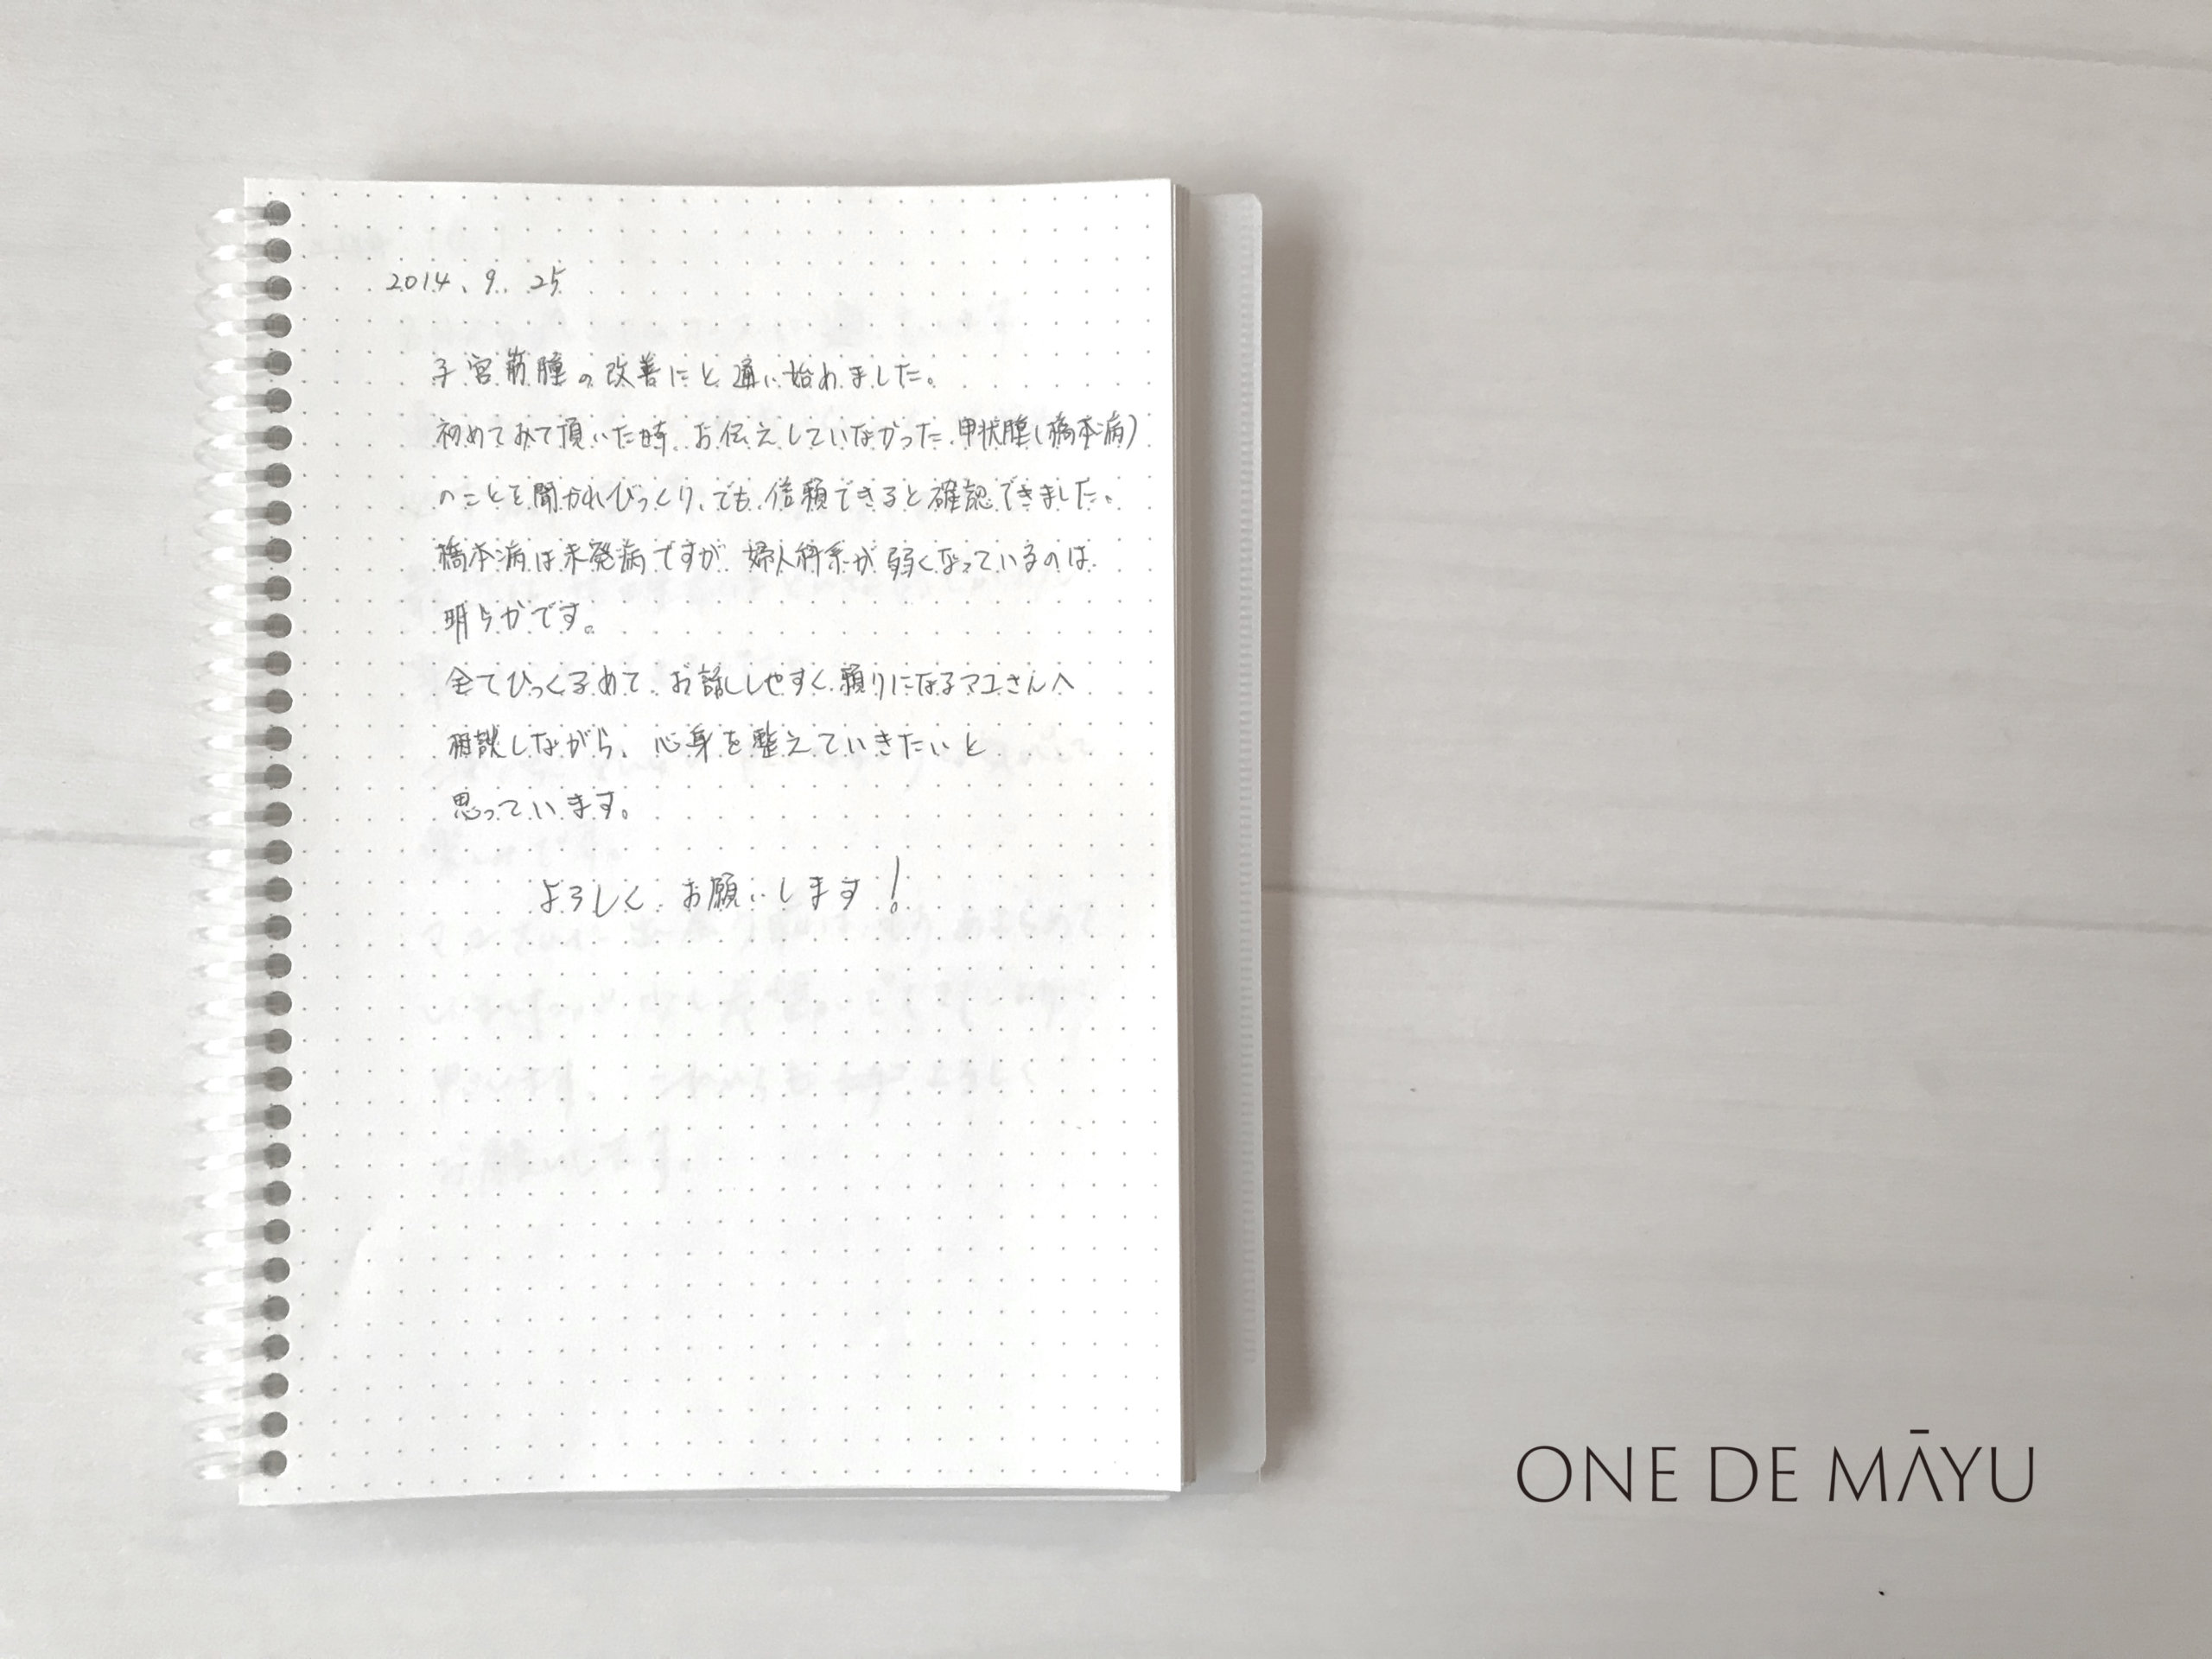 2014. 9. 25
子宮筋腫の改善にと通い始めました。
初めてみて頂いた時、お伝えしていなかった甲状腺(橋本病)
のことを聞かれびっくり、でも信頼できると確認できました。
橋本病は未発病ですが 婦人科系が弱くなっているのは
明らかです。
全てひっくるめて、お話ししやすく頼りになるマユさんへ
相談しながら、心身を整えていきたいと
思っています。
よろしく お願いします!
ONE DE MĀYU